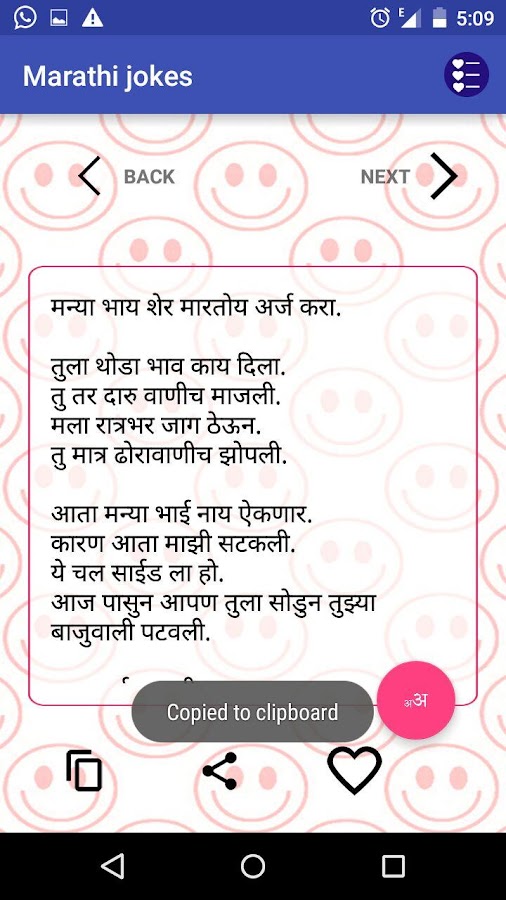 E
5:09
Marathi jokes
BACK
NEXT
मन्या भाय शेर मारतोय अर्ज करा.
तुला थोडा भाव काय दिला.
तु तर दारु वाणीच माजली.
मला रात्रभर जाग ठेऊन.
तु मात्र ढोरावाणीच झोपली.
आता मन्या भाई नाय ऐकणार.
कारण आता माझी सटकली.
ये चल साईड ला हो.
आज पासुन आपण तुला सोडुन तुझ्या
बाजुवाली पटवली.
Copied to clipboard
अअ